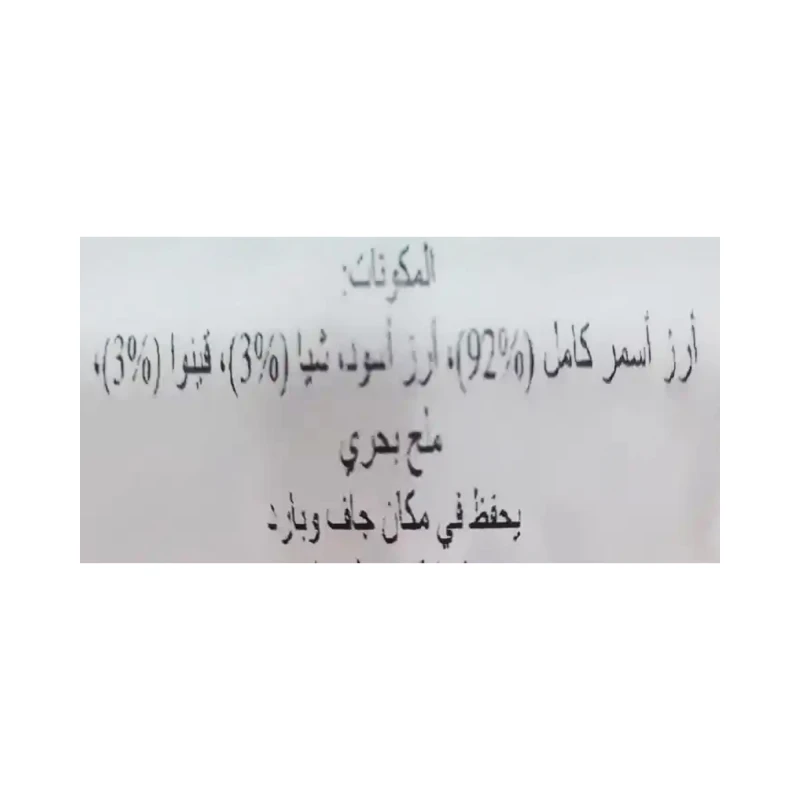 المكونات:
أرز أسمر كامل (92%)، أرز أسود، شيا (3%)، قينوا (3%)،
ملح بحري
يحفظ في مكان جاف وبارد